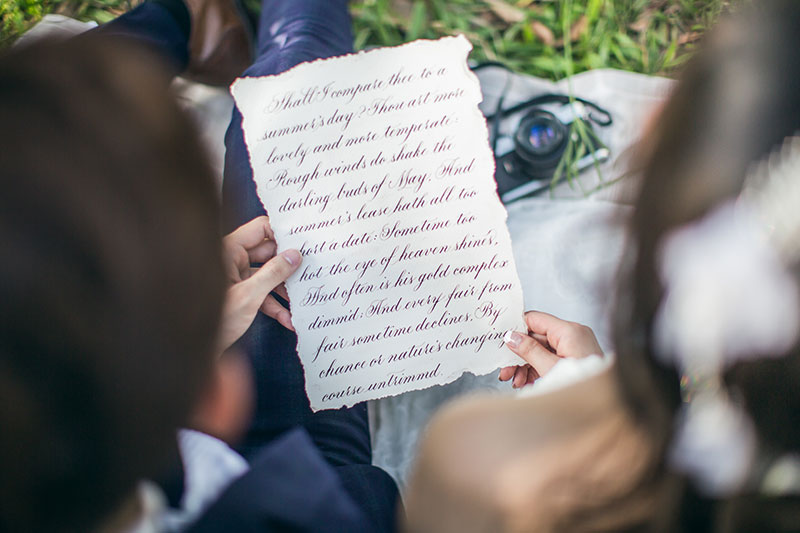 Shall I compare thee to a
summer's day? Thou art more
lovely and more temperate:
Rough winds do shake the
darling buds of May, And
summer's lease hath all too
hort a date: Sometime too
hot the eye of heaven shines,
And often is his gold complex
dimm'd; And every fair from
fair sometime declines, By
chance or nature's changing
course untrimmd.